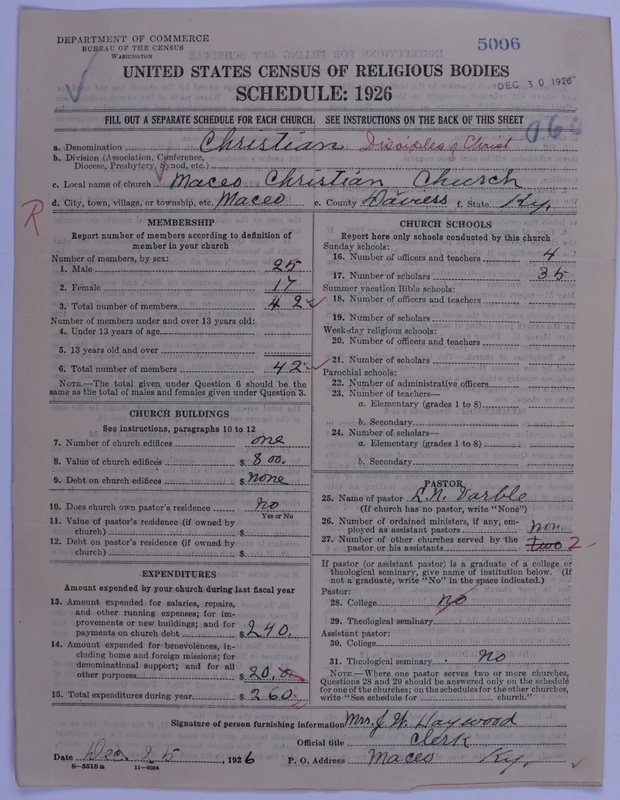 DEPARTMENT OF COMMERCE
BUREAU OF THE CENSUS
WASHINGTON
5006
UNITED STATES CENSUS OF RELIGIOUS BODIES
SCHEDULE: 1926
DEC 30 1926
FILL OUT A SEPARATE SCHEDULE FOR EACH CHURCH. SEE INSTRUCTIONS ON THE BACK OF THIS SHEET
a. Denomination Christian Disciples of Christ
b. Division (Association, Conference, Diocese, Presbytery, Synod, etc.)
c. Local name of church Maceo Christian Church
d. City, town, village, or township, etc. Maceo e. County Daviess f. State Ky.
R
MEMBERSHIP
Report number of members according to definition of member in your church
Number of members, by sex:
1. Male 25
2. Female 17
3. Total number of members 42
Number of members under and over 13 years old:
4. Under 13 years of age
5. 13 years old and over
6. Total number of members 42
NOTE.—The total given under Question 6 should be the same as the total of males and females given under Question 3.
CHURCH BUILDINGS
See instructions, paragraphs 10 to 12
7. Number of church edifices one
8. Value of church edifices $ 800.
9. Debt on church edifices $ none
10. Does church own pastor's residence no
Yes or No
11. Value of pastor's residence (if owned by church) $
12. Debt on pastor's residence (if owned by church) $
EXPENDITURES
Amount expended by your church during last fiscal year
13. Amount expended for salaries, repairs, and other running expenses; for improvements or new buildings; and for payments on church debt $ 240.
14. Amount expended for benevolences, including home and foreign missions; for denominational support; and for all other purposes $ 20.00
15. Total expenditures during year $ 260.
CHURCH SCHOOLS
Report here only schools conducted by this church
Sunday schools:
16. Number of officers and teachers 4
17. Number of scholars 35
Summer vacation Bible schools:
18. Number of officers and teachers
19. Number of scholars
Week-day religious schools:
20. Number of officers and teachers
21. Number of scholars
Parochial schools:
22. Number of administrative officers
23. Number of teachers—
a. Elementary (grades 1 to 8)
b. Secondary
24. Number of scholars—
a. Elementary (grades 1 to 8)
b. Secondary
PASTOR
25. Name of pastor L. N. Varble
(If church has no pastor, write "None")
26. Number of ordained ministers, if any, employed as assistant pastors non
27. Number of other churches served by the pastor or his assistants two 2
If pastor (or assistant pastor) is a graduate of a college or theological seminary, give name of institution below. (If not a graduate, write "No" in the space indicated.)
Pastor:
28. College no
29. Theological seminary
Assistant pastor:
30. College
31. Theological seminary no
NOTE.—Where one pastor serves two or more churches, Questions 28 and 29 should be answered only on the schedule for one of the churches; on the schedules for the other churches, write "See schedule for church."
Signature of person furnishing information Mrs. J W Haywood
Official title Clerk
Date Dec. 25, 1926 P. O. Address Maceo Ky.
8—5518a 11—9084